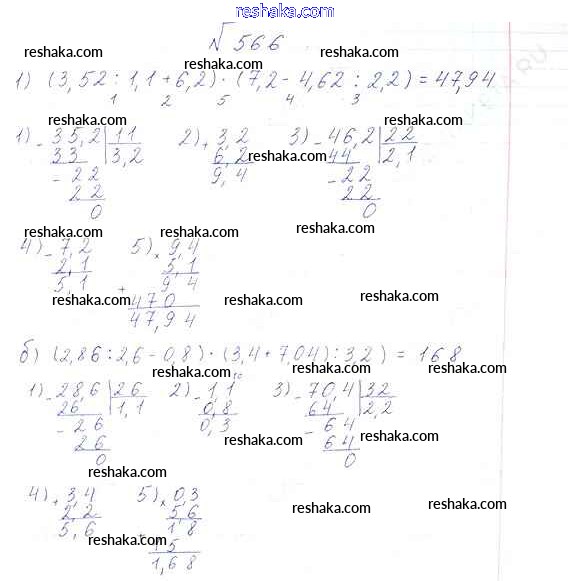 reshaka.com
№566
reshaka.com reshaka.com reshaka.com
1) (3,52 : 1,1 + 6,2) · (7,2 - 4,62 : 2,2) = 47,94
1 2 5 4 3
reshaka.com reshaka.com reshaka.com
1) - 35,2 | 11 2) + 3,2 3) - 46,2 | 22
33 | 3,2 6,2 44 | 2,1
reshaka.com
= 22 9,4 - 22
22 22
0 0
reshaka.com reshaka.com reshaka.com
4) - 7,2 5) × 9,4
2,1 5,1
reshaka.com reshaka.com
5,1 9 4
+ 470
reshaka.com reshaka.com reshaka.com
47,94
reshaka.com
б) (2,86 : 2,6 - 0,8) · (3,4 + 7,04) : 3,2) = 168
reshaka.com reshaka.com
1) - 28,6 | 26 2) - 1,1 3) - 70,4 | 32
26 | 1,1 0,8 64 | 2,2
reshaka.com
- 26 0,3 - 64
reshaka.com reshaka.com
26 64
0 0
reshaka.com
4) + 3,4 5) × 0,3
2,2 5,6
reshaka.com reshaka.com
5,6 1 8
reshaka.com
+ 15
1,68
reshaka.com reshaka.com